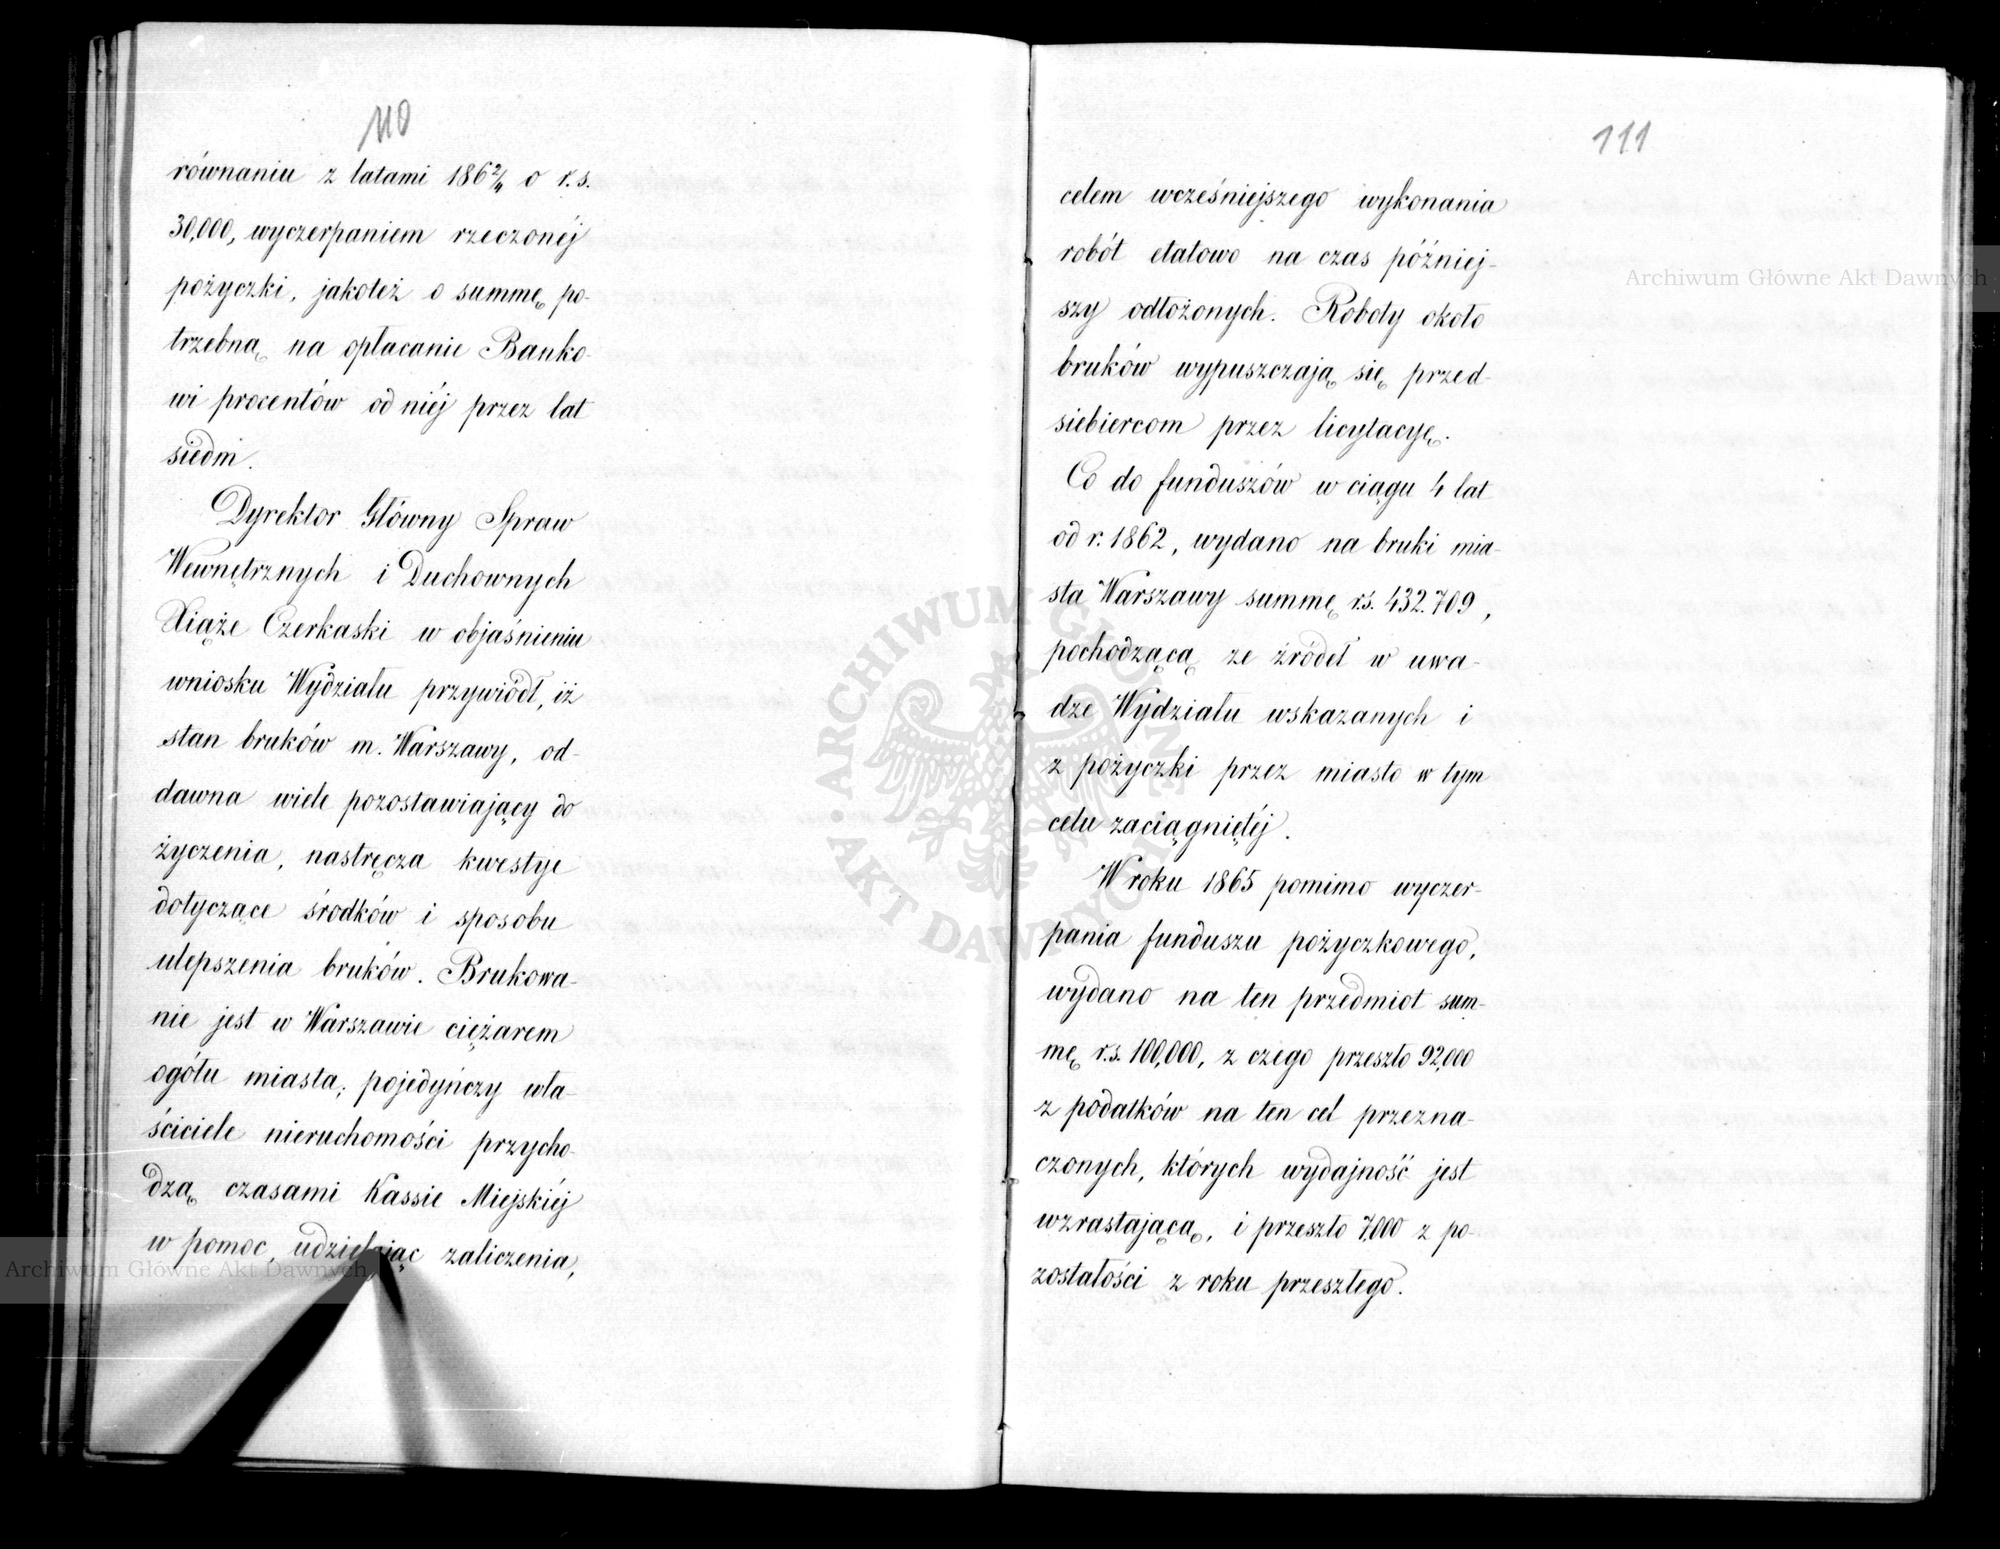 110
równaniu z latami 186 2/4 o r.s.
30,000, wyczerpaniem rzeczonéj
pożyczki, jakoteż o summę po-
trzebną na opłacanie Banko-
wi procentów od niéj przez lat
siedm.
Dyrektor Główny Spraw
Wewnętrznych i Duchownych
Xiąże Czerkaski w objaśnieniu
wniosku Wydziału przywiódł, iż
stan bruków m. Warszawy, od-
dawna wiele pozostawiający do
życzenia, nastręcza kwestye
dotyczące środków i sposobu
ulepszenia bruków. Brukowa-
nie jest w Warszawie ciężarem
ogółu miasta; pojedyńczy wła-
ściciele nieruchomości przycho-
dzą czasami Kassie Miejskiéj
w pomoc, udzielając zaliczenia,
111
celem wcześniejszego wykonania
robót etatowo na czas później-
szy odłożonych. Roboty około
bruków wypuszczają się przed-
siebiercom przez licytacyę.
Co do funduszów w ciągu 4 lat
od r. 1862, wydano na bruki mia-
sta Warszawy summę r.s. 432.709,
pochodzącą ze źródeł w uwa-
dze Wydziału wskazanych i
z pożyczki przez miasto w tym
celu zaciągniętéj.
W roku 1865 pomimo wyczer-
pania funduszu pożyczkowego,
wydano na ten przedmiot sum-
mę r.s. 100,000, z czego przeszło 92,000
z podatków na ten cel przezna-
czonych, których wydajność jest
wzrastającą, i przeszło 7,000 z po-
zostałości z roku przeszłego.
Archiwum Główne Akt Dawnych
Archiwum Główne Akt Dawnych
ARCHIWUM GŁÓWNE
AKT DAWNYCH